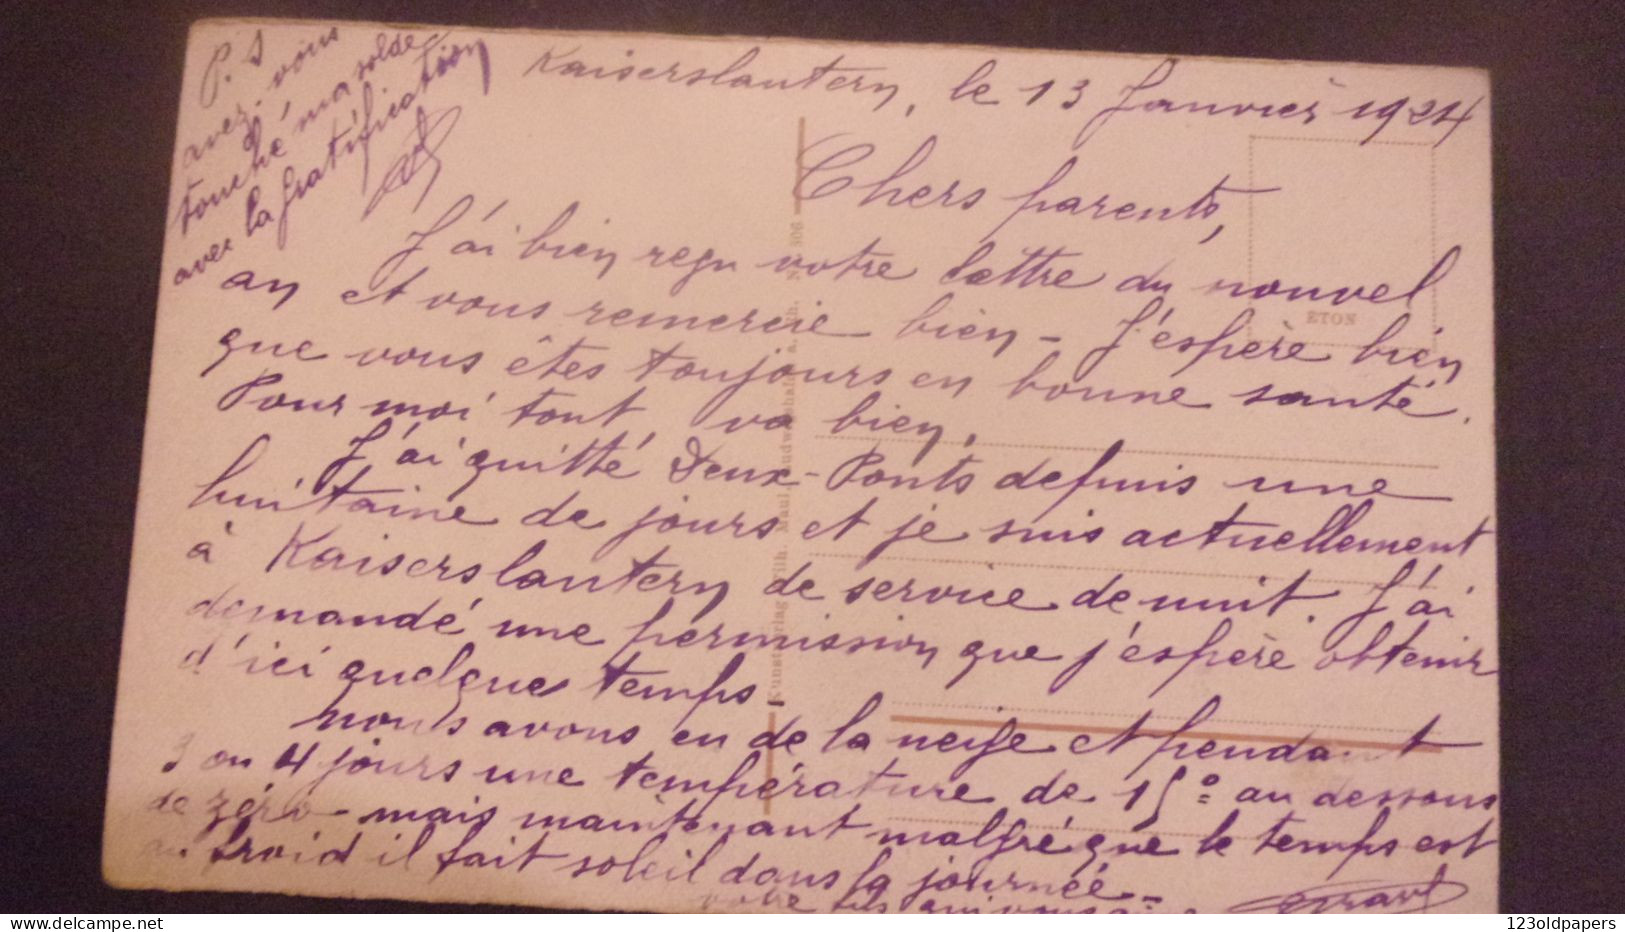 P.S
avez-vous
touché ma solde
avec la gratification
Kaiserslautern, le 13 Janvier 1924
Chers parents,
J'ai bien reçu votre lettre du nouvel
an et vous remercie bien - J'espère bien
que vous êtes toujours en bonne santé.
Pour moi tout va bien.
J'ai quitté Deux-Ponts depuis une
huitaine de jours et je suis actuellement
à Kaiserslautern de service de nuit. J'ai
demandé une permission que j'espère obtenir
d'ici quelque temps -
nous avons eu de la neige et pendant
3 ou 4 jours une température de 15° au dessous
de zéro - mais maintenant malgré que le temps est
au froid il fait soleil dans la journée -
votre fils qui vous
ETON
123oldpapers